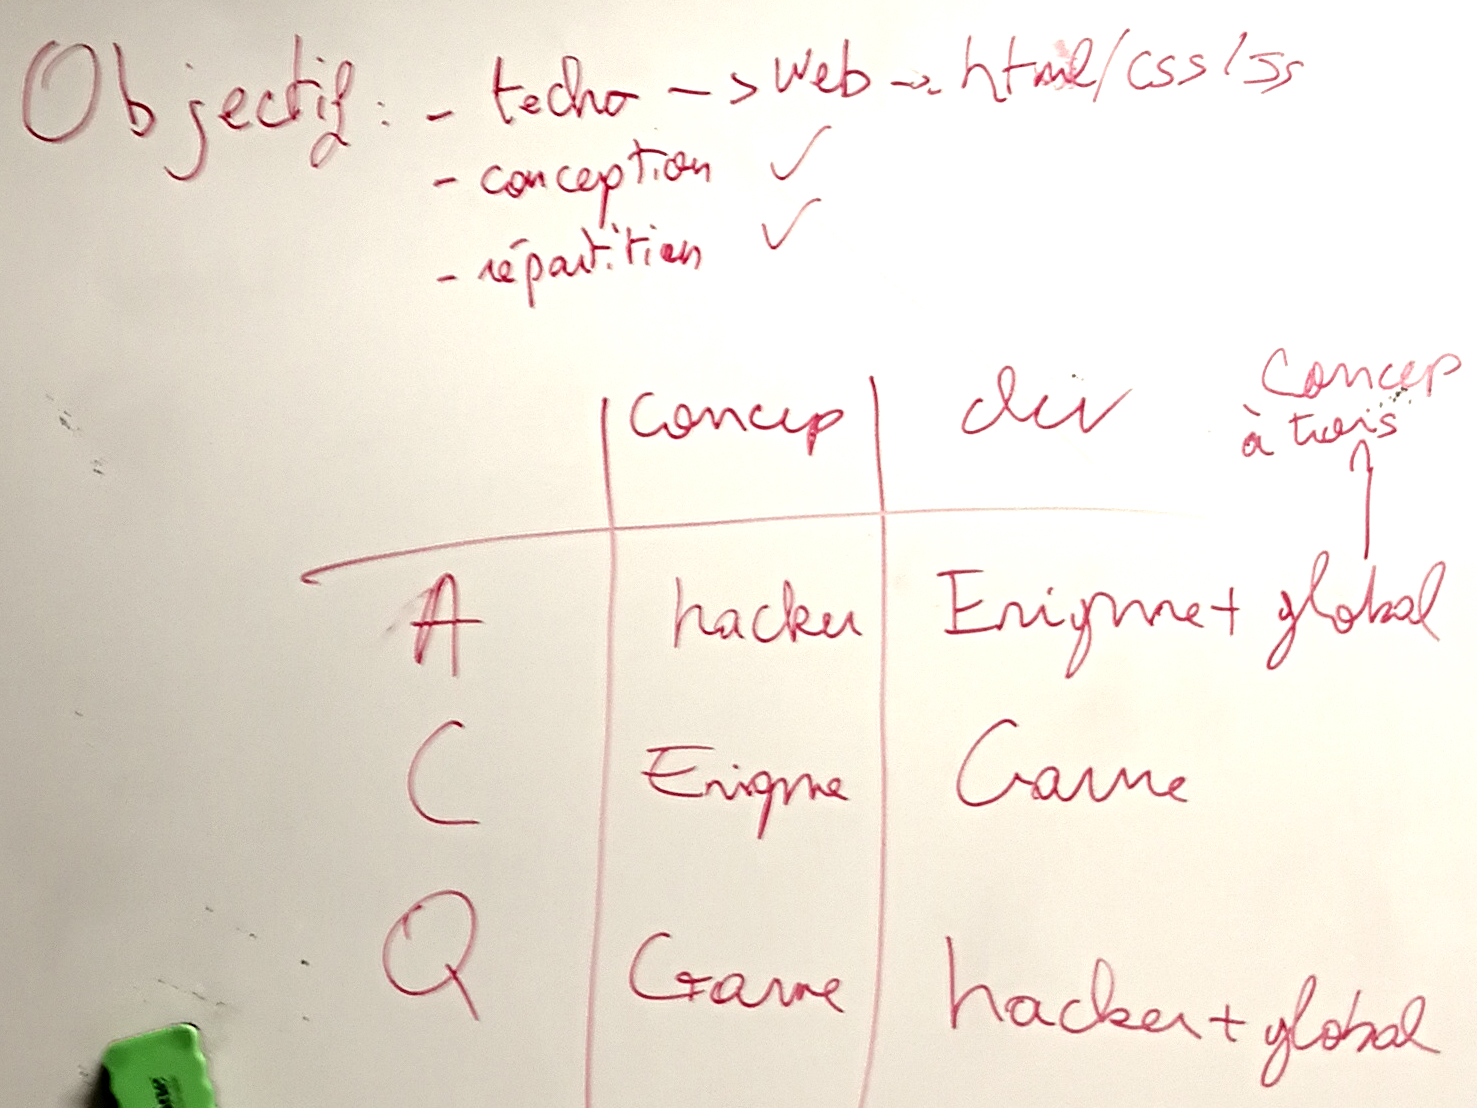 Objectif : - techno -> Web -> html/css/JS
- conception ✓
- répartition ✓
Concep
à trois
concep dev
A hacker Enigme + global
C Enigme Game
Q Game hacker + global